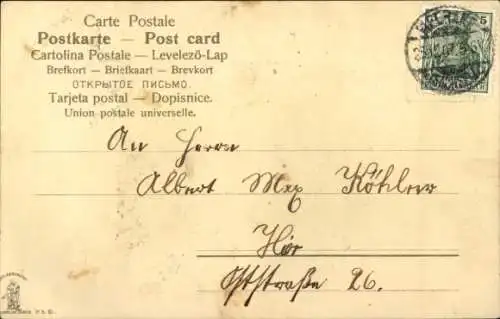 Carte Postale
Postkarte — Post card
Cartolina Postale — Levelező-Lap
Brefkort — Briefkaart — Brevkort
ОТКРЫТОЕ ПИСЬМО.
Tarjeta postal — Dopisnice.
Union postale universelle.
5
An Herrn
Albert Max Köhler
Hier
Oststraße 26.